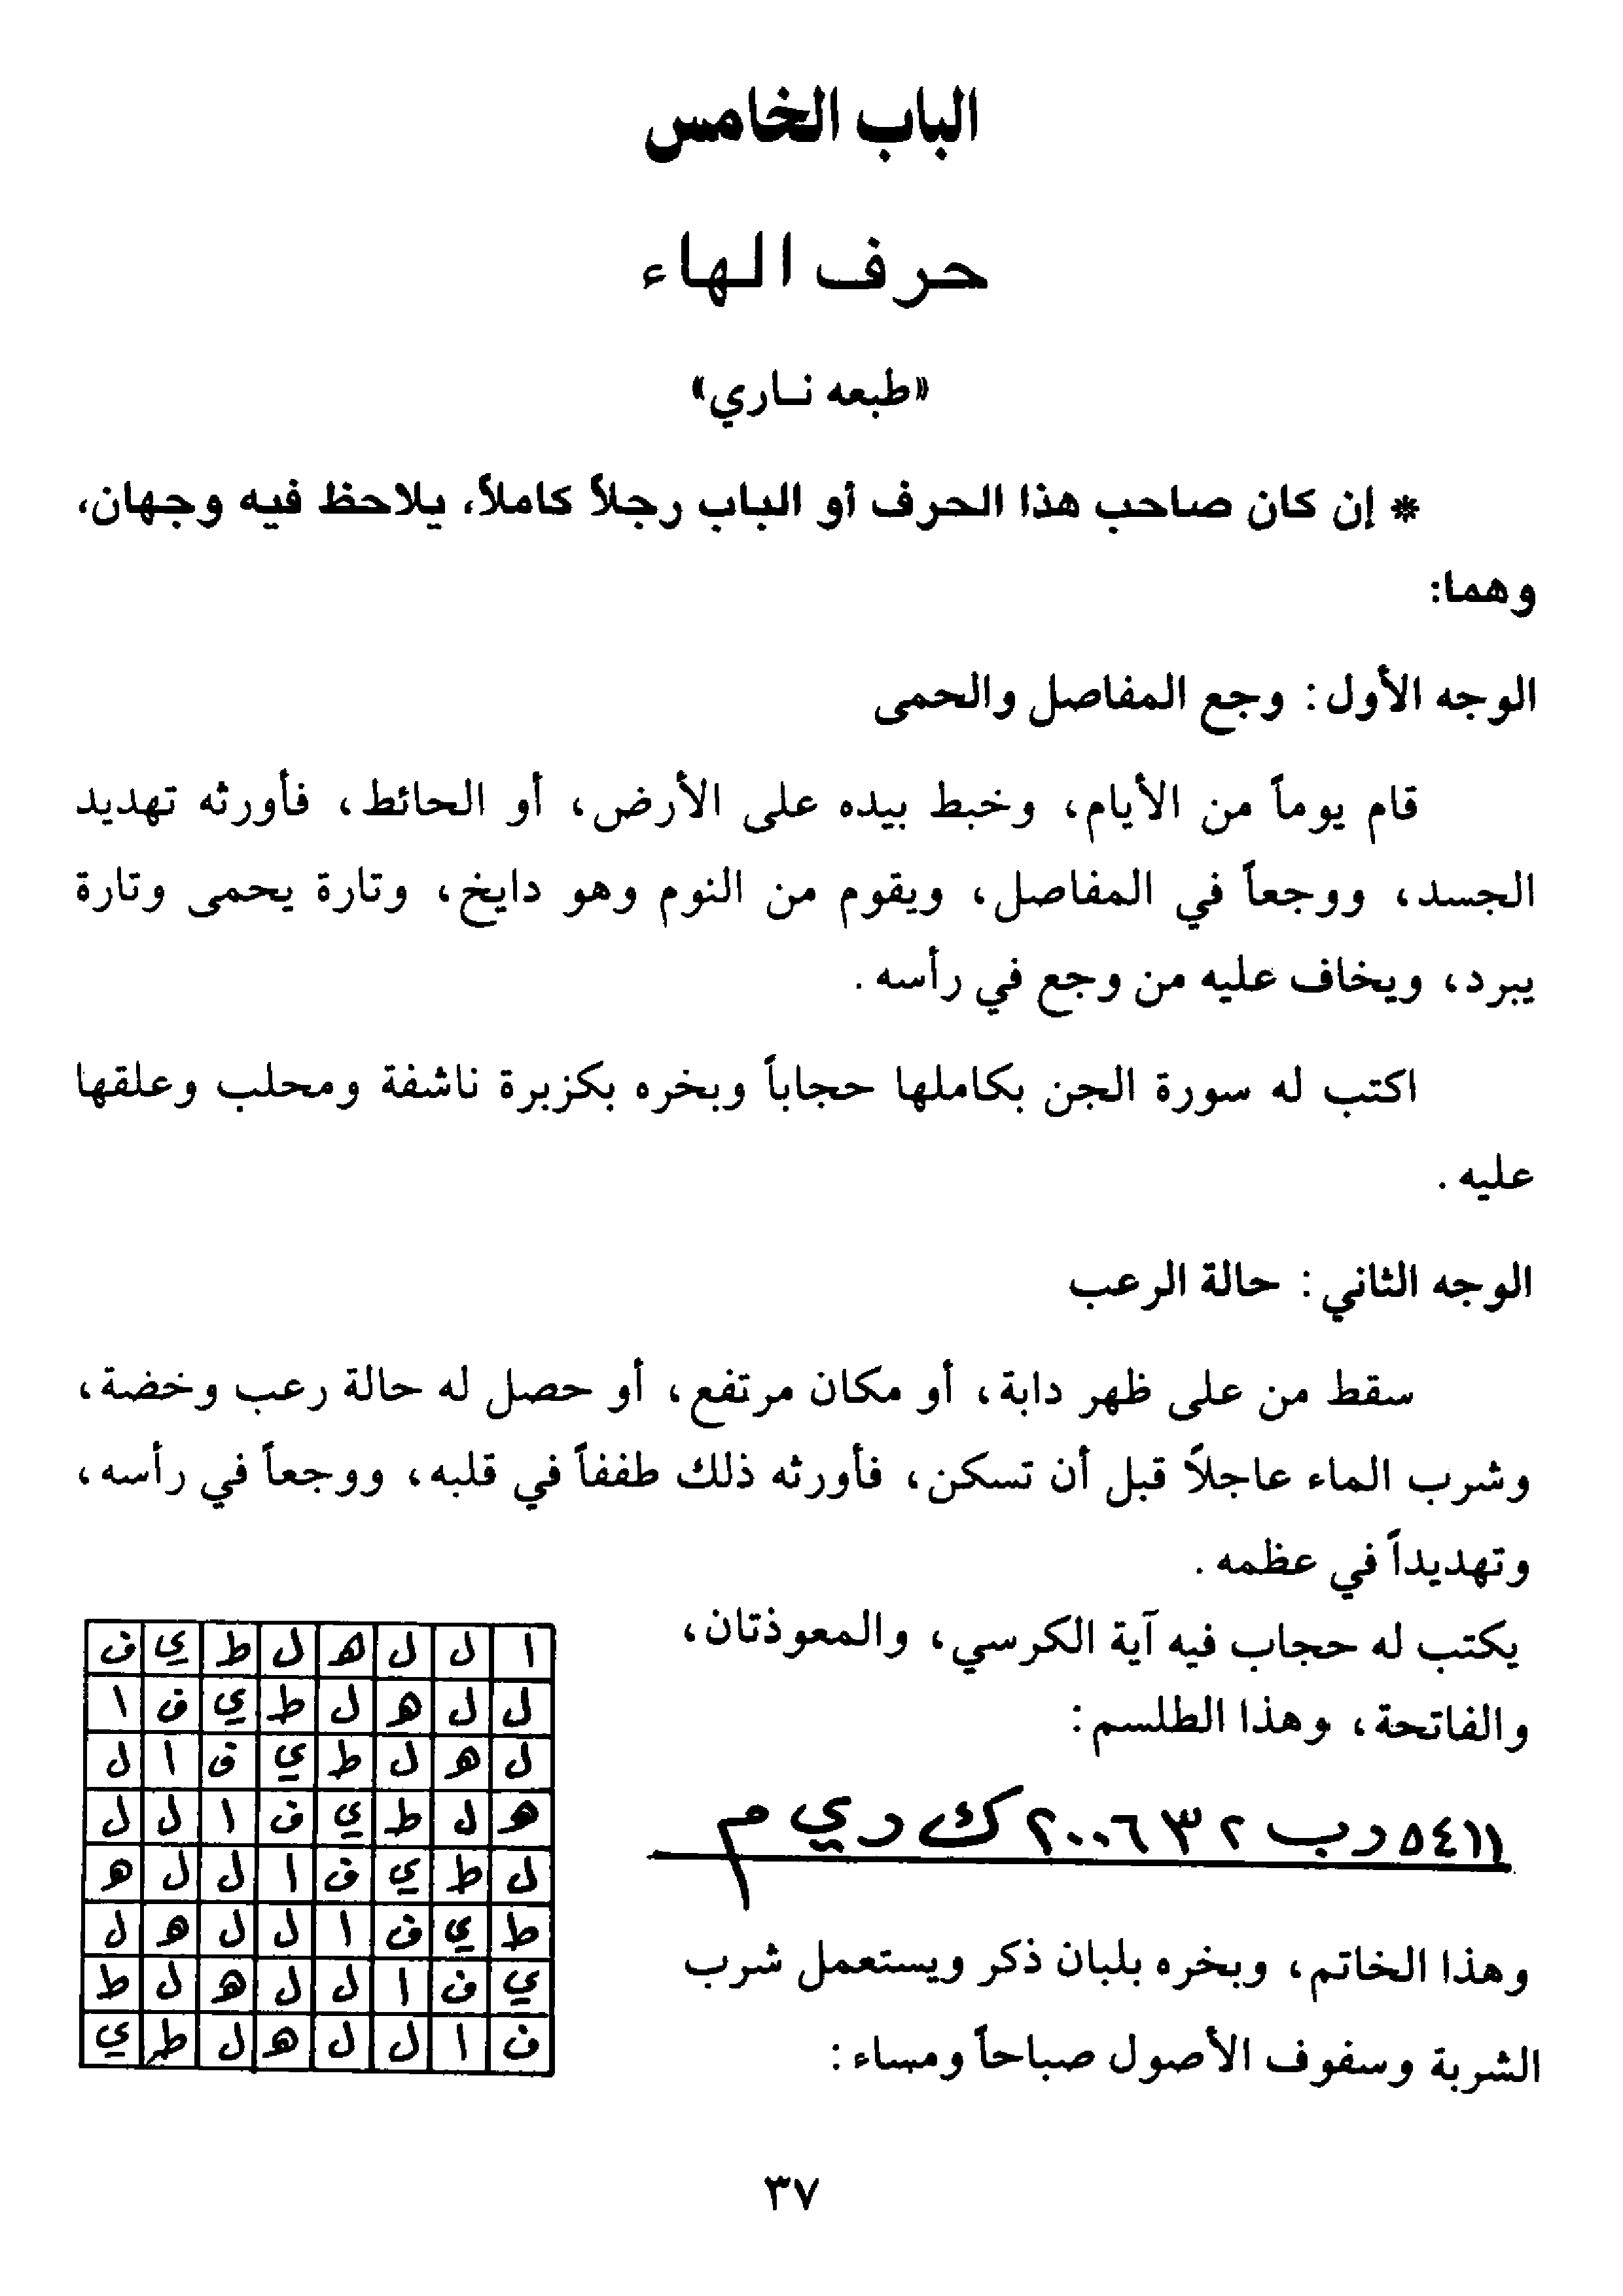 الباب الخامس
حرف الهاء
«طبعه نـاري»
* إن كان صاحب هذا الحرف أو الباب رجلاً كاملاً، يلاحظ فيه وجهان،
وهما:
الوجه الأول: وجع المفاصل والحمى
قام يوماً من الأيام، وخبط بيده على الأرض، أو الحائط، فأورثه تهديد
الجسد، ووجعاً في المفاصل، ويقوم من النوم وهو دايخ، وتارة يحمى وتارة
يبرد، ويخاف عليه من وجع في رأسه.
اكتب له سورة الجن بكاملها حجاباً وبخره بكزبرة ناشفة ومحلب وعلقها
عليه.
الوجه الثاني: حالة الرعب
سقط من على ظهر دابة، أو مكان مرتفع، أو حصل له حالة رعب وخضة،
وشرب الماء عاجلاً قبل أن تسكن، فأورثه ذلك طففاً في قلبه، ووجعاً في رأسه،
وتهديداً في عظمه.
يكتب له حجاب فيه آية الكرسي، والمعوذتان،
والفاتحة، وهذا الطلسم:
٥٤١١ رب ٢ ٣ ٢٠٠٦ ك ري م
وهذا الخاتم، وبخره بلبان ذكر ويستعمل شرب
الشربة وسفوف الأصول صباحاً ومساء:
ا ل ل ه ل ط ي ف
ل ل ه ل ط ي ف ا
ل ه ل ط ي ف ا ل
ه ل ط ي ف ا ل ل
ل ط ي ف ا ل ل ه
ط ي ف ا ل ل ه ل
ي ف ا ل ل ه ل ط
ف ا ل ل ه ل ط ي
٣٧